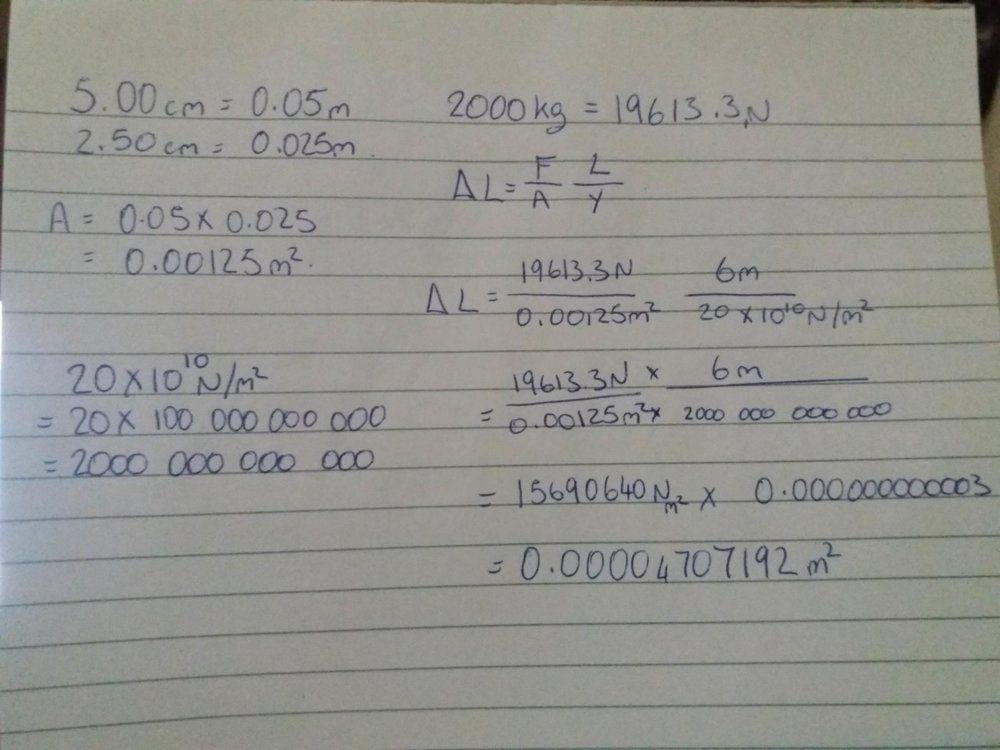 5.00cm = 0.05m
2.50cm = 0.025m.
A = 0.05 x 0.025
= 0.00125m².
20 x 10¹⁰ N/m²
= 20 x 100 000 000 000
= 2000 000 000 000
2000kg = 19613.3N
ΔL = F/A L/Y
ΔL = 19613.3N/0.00125m² 6m/20 x 10¹⁰N/m²
= 19613.3N x 6m/0.00125m² x 2000 000 000 000
= 15690640 N/m² x 0.000000000003
= 0.00004707192 m²